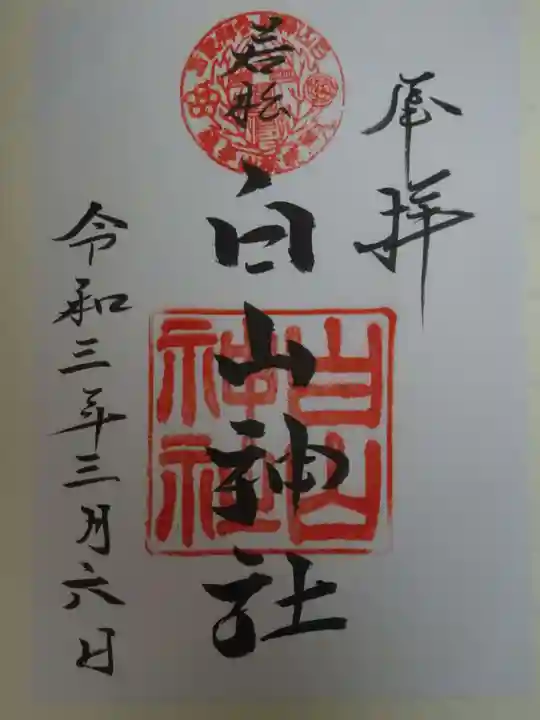 奉拝
若松
白山神社
白山
神社
令和三年三月六日